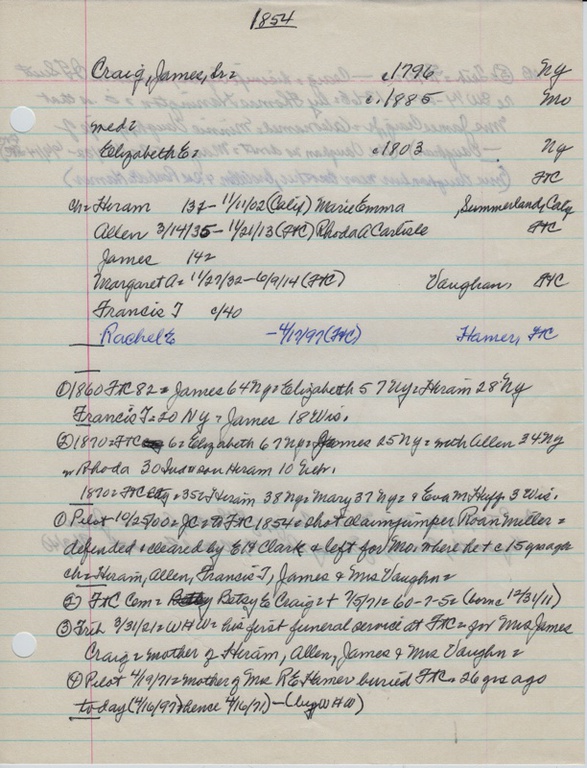 1854
Craig, James, Sr= c1796 Ny
c.1885 Mo
med=
Elizabeth E= c1803 Ny
FtC
ch= Hiram 137- 11/11/02 (Calif) Marie Emma , Summerland, Calif
Allen 3/14/35-11/21/13 (FtC) Rhoda A Carlisle FtC
James 142
Margaret A= 11/27/32-6/9/14 (FtC) Vaughan, FtC
Francis T c/40
Rachel E -4/17/97 (FtC) Hamer, FtC
① 1860 FtC 82= James 64 Ny= Elizabeth 57 Ny= Hiram 28 Ny
Francis T=20 NY= James 18 Wis.
② 1870=FtC 6= Elizabeth 67 Ny= James 25 Ny= with Allen 34 Ny
Rhoda 30 Ind= son Hiram 10 Nebr.
1870=FtC =35= Hiram 38 Ny= Mary 37 Ny= & Eva M Huff 3 Wis.
① Pilot 10/25/00= JC= to FtC 1854= shot claimjumper Roan Miller=
defended & cleared by E H Clark & left for Mo. where he + c15 yrs ago
ch= Hiram, Allen, Francis T, James & Mrs Vaughn=
② FtC Cem= Betsy E Craig= + 7/5/71= 60-7-5= (borne 12/31/11)
③ 3/31/21= WHW= first funeral service at FtC= for Mrs James
Craig= mother of Hiram, Allen, James & Mrs Vaughn=
④ Pilot 4/19/71= mother of Mrs R E Hamer buried FtC= 26 yrs ago
today (4/16/97) hence 4/16/71)-(by WHW)